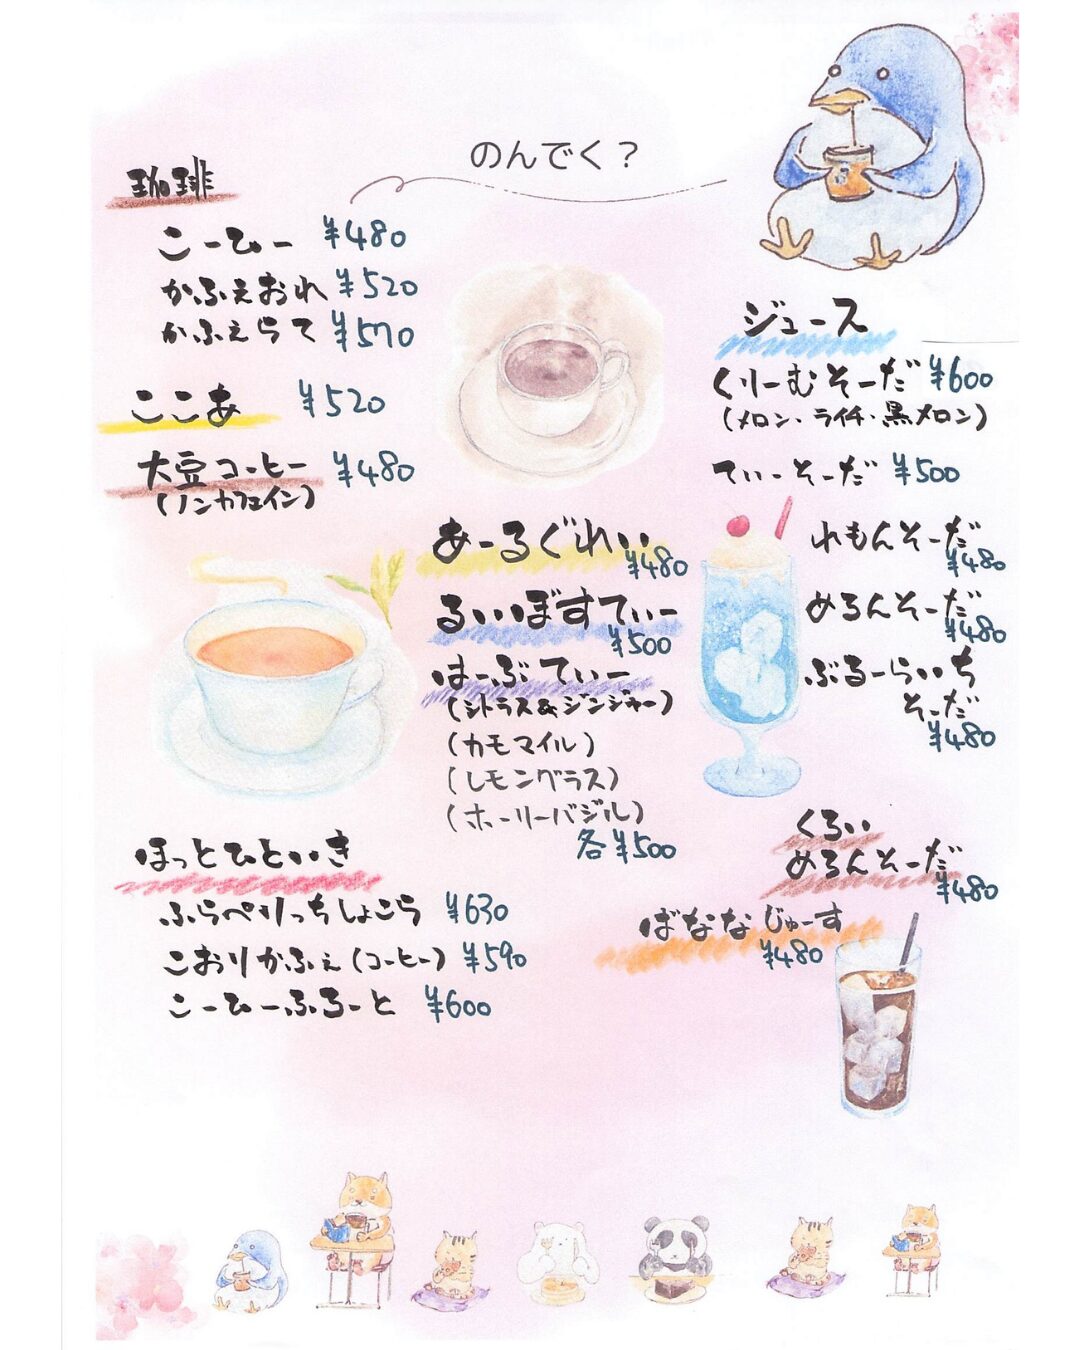 のんでく？
珈琲
こーひー ¥480
かふぇおれ ¥520
かふぇらて ¥570
ここあ ¥520
大豆コーヒー ¥480
(ノンカフェイン)
あーるぐれい
¥480
るいいぼすてぃー
¥500
はーぶてぃー
(シトラス&ジンジャー)
(カモマイル)
(レモングラス)
(ホーリーバジル)
各¥500
ほっとひといき
ふらぺりっちしょこら ¥630
こおりかふぇ(コーヒー) ¥590
こーひーふろーと ¥600
ジュース
くりーむそーだ ¥600
(メロン・ライチ・黒メロン)
てぃーそーだ ¥500
れもんそーだ
¥480
めろんそーだ
¥480
ぶるーらいち
そーだ
¥480
くろい
めろんそーだ
¥480
ばななじゅーす
¥480